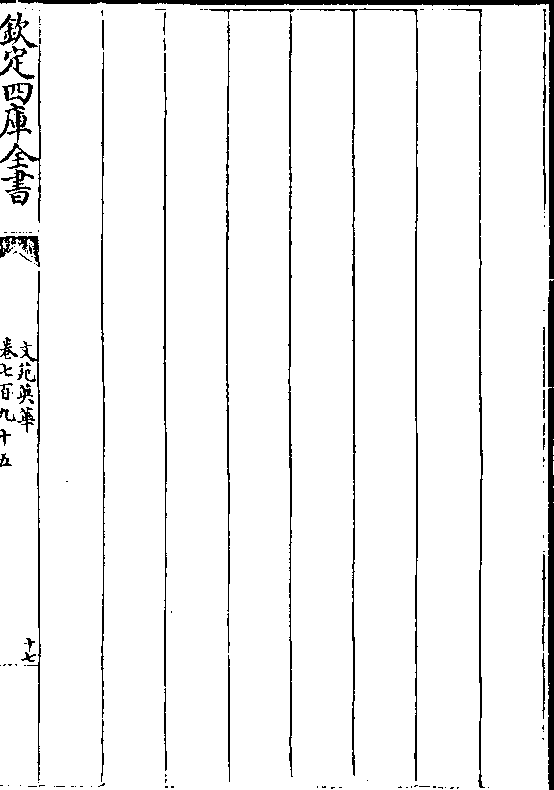 欽定四庫全書
文苑英華
卷七百九十五
十七